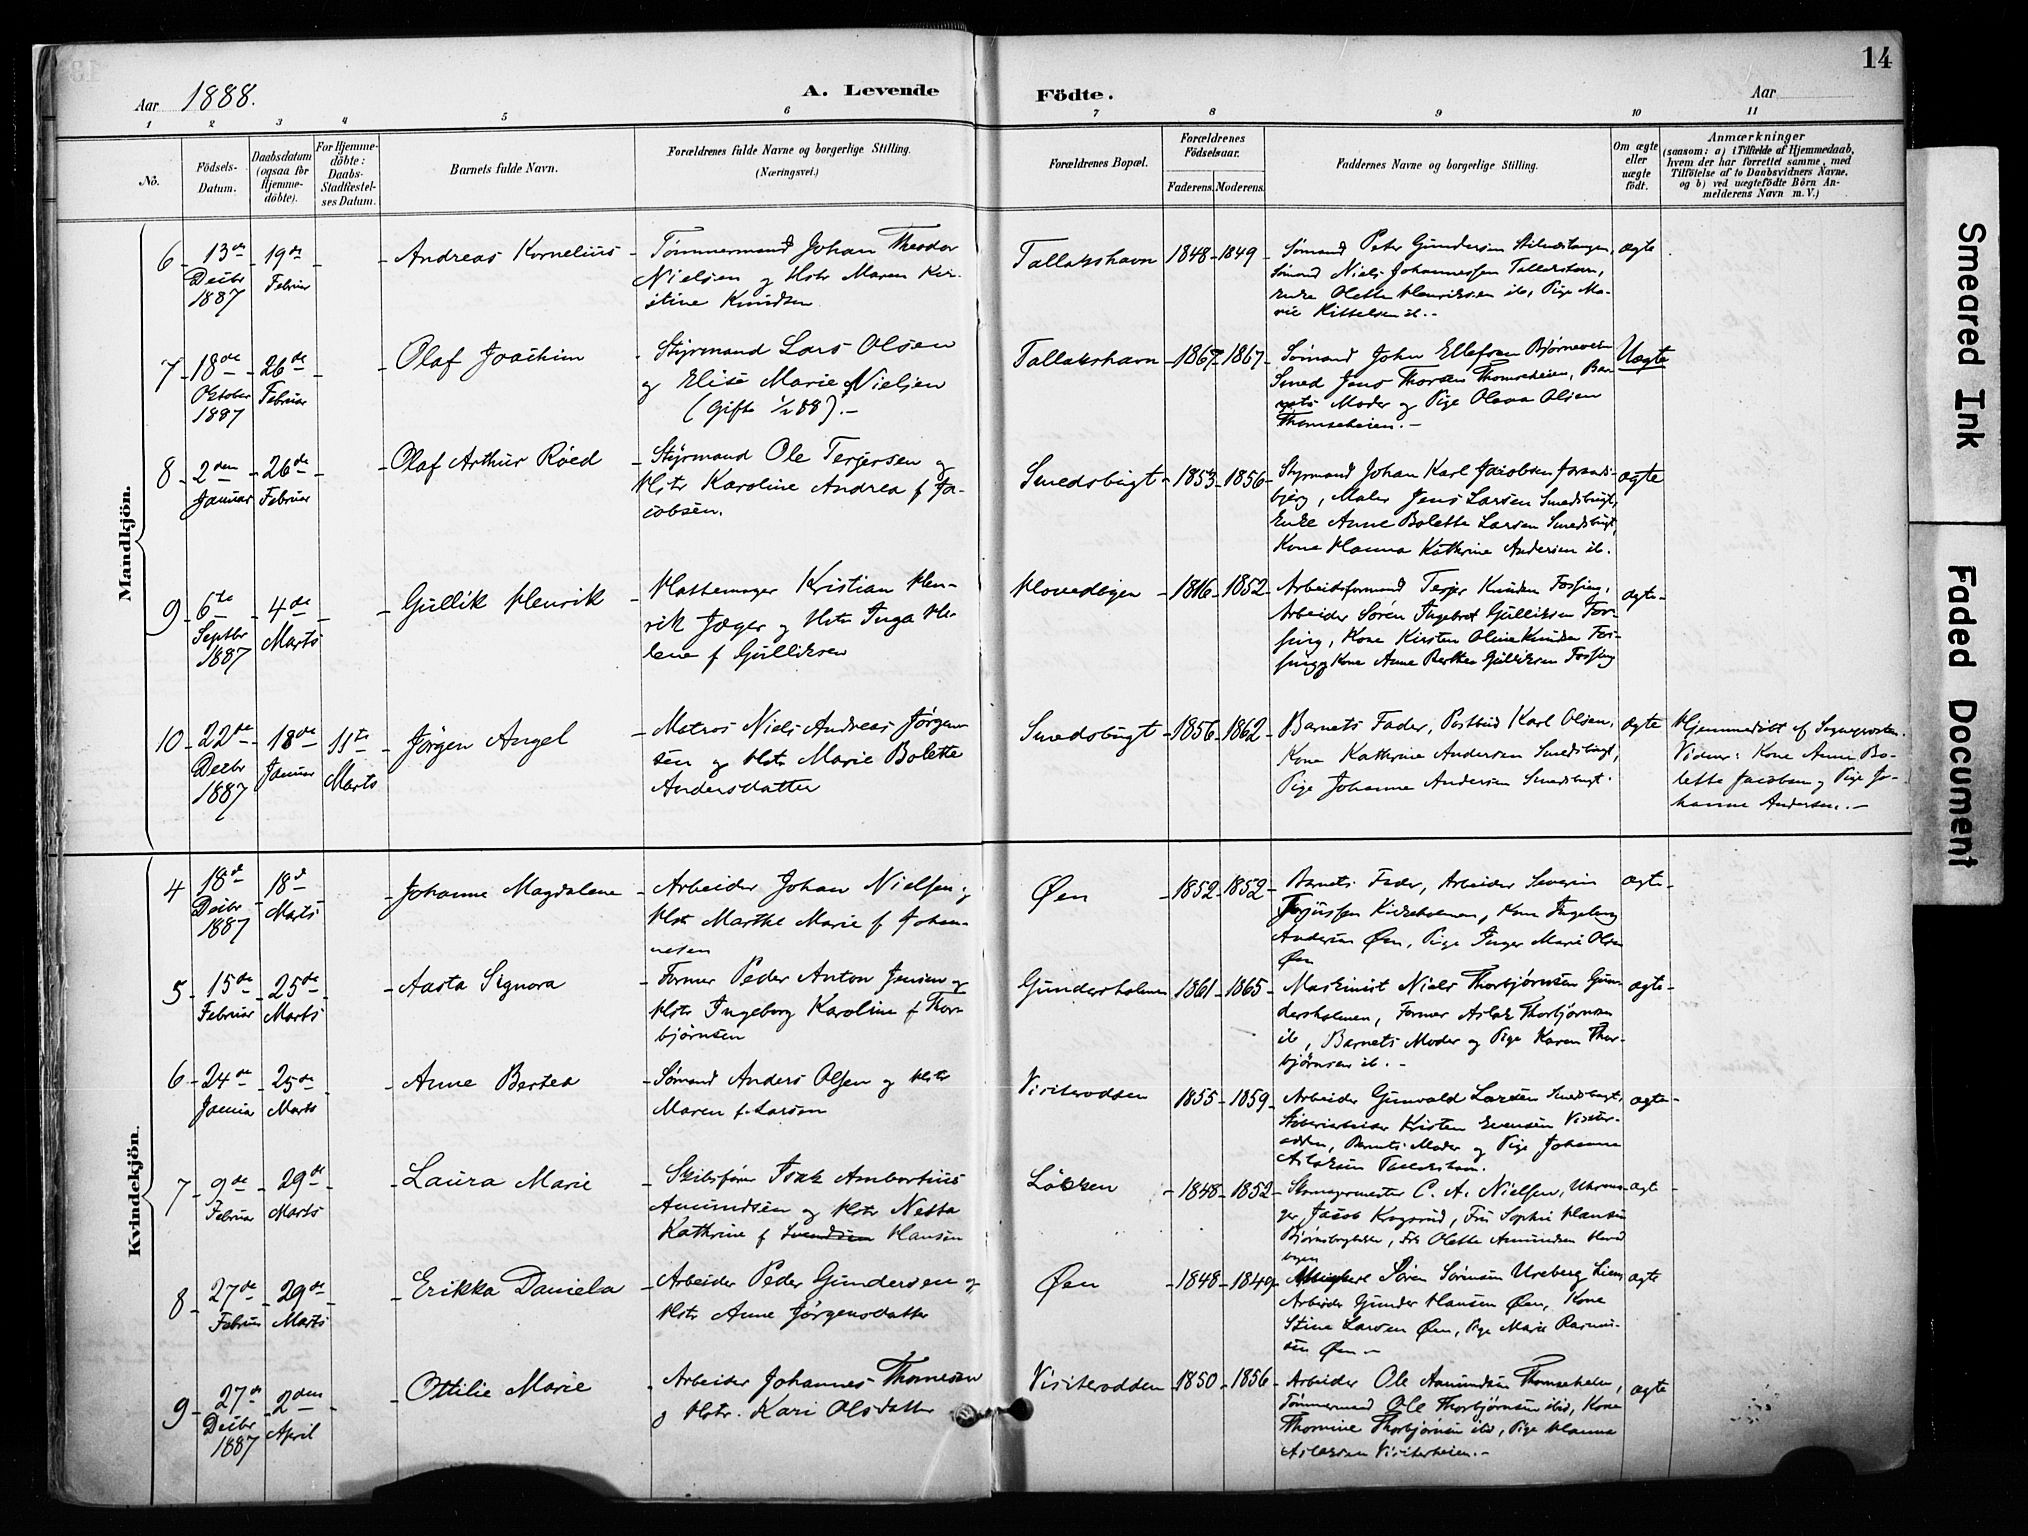 14
Aar 1888.
A. Levende Födte.
Aar
1 2 3 4 5 6 7 8 9 10 11
No.
Födsels-Datum.
Daabsdatum (ogsaa for Hjemme-döbte).
For Hjemme-döbte: Daabs-Stadfæstel-ses Datum.
Barnets fulde Navn.
Forældrenes fulde Navne og borgerlige Stilling.
(Næringsvei.)
Forældrenes Bopæl.
Forældrenes Födselsaar.
Faderens. Moderens.
Faddernes Navne og borgerlige Stilling.
Om ægte eller uægte födt.
Anmærkninger
(saasom: a) i Tilfælde af Hjemmedaab,
hvem der har forrettet samme, med
Tilföielse af to Daabsvidners Navne,
og b) ved uægtefödte Börn An-
melderens Navn m. V.)
Mandkjön.
6 13de Decbr 1887
19de Februar
Andreas Kornelius
Tømmermand Johan Theodor
Nielsen og Hstr Maren Kri-
stine Knudsen
Tallakshavn 1848 1849
Sømand Peter Gundersen
Sømand Niels Johannessen Tallakshavn,
Enke Olette Henriksen ib, Pige Ma-
rie Kittelsen ib.
ægte
7 18de Oktober 1887
26de Februar
Olaf Joachim
Styrmand Lars Olsen
og Elise Marie Nielsen
(Gifte 1/2 88).-
Tallakshavn 1867 1867
Sømand John Ellefsen
Smed Jens Thorsen Thomseheien, Bar-
nets Moder og Pige Olava Olsen
Thomseheien.-
Uægte
8 2den Januar
26de Februar
Olaf Arthur Röed
Styrmand Ole Terjersen og
Hstr Karoline Andrea f Ja-
cobsen.
Smedsbugt 1853 1856
Styrmand Johan Karl Jacobsen
bjerg, Maler Jens Larsen Smedsbugt,
Enke Anne Bolette Larsen Smedsbugt
Kone Hanna Kathrine Andersen ib.
ægte
9 6te Septbr 1887
4de Marts
Gullik Henrik
Hattemager Kristian Hen-
rik Jæger og Hstr Inga He-
lene f Gulliksen
Hovedbyen 1852
Arbeidsformand Terje Knudsen Fossing,
Arbeider Søren Ingebret Gulliksen Fos-
sing, Kone Kirsten Oline Knudsen Fos-
sing, Kone Anne Berthea Gulliksen Fossing
ægte
10 22de Decbr 1887
18de Januar
11te Marts
Jørgen Angel
Matros Niels Andreas Jørgen-
sen og Hstr Marie Bolette
Andersdatter
Smedsbugt 1856 1862
Barnets Fader, Postbud Karl Olsen,
Kone Kathrine Andersen Smedsbugt,
Pige Johanne Andersen Smedsbugt.
ægte
Hjemmedøbt af Sognepresten.
Vidner: Kone Anne Bo-
lette Jacobsen og Pige Jo-
hanne Andersen.-
Kvindekjön.
4 18d Decbr 1887
18d Marts
Johanne Magdalene
Arbeider Johan Nielsen og
Hstr Marthe Marie f Johan-
nesen
Øen 1852 1852
Barnets Fader, Arbeider Severin
Kirkeholmen, Kone Ingeborg
Andersen Øen, Pige Inger Marie Olsen
Øen
ægte
5 15de Februar
25de Marts
Aasta Signora
Former Peder Anton Jensen og
Hstr Ingeborg Karoline f Thor-
bjørnsen
Gundersholmen 1861 1865
Maskinist Niels Thorbjørnsen Gun-
dersholmen, Former Aslak Thorbjørnsen
ib, Barnets Moder og Pige Karen Thor-
bjørnsen ib.-
ægte
6 24de Januar
25de Marts
Anne Bertea
Sømand Anders Olsen og Hstr
Maren f. Larsen
Visiterodden 1855 1859
Arbeider Gunvald Larsen Smedsbugt,
Støberiarbeider Kristen Evensen Visiter-
odden, Barnets Moder og Pige Johanne
Aslaksen Tallakshavn.
ægte
7 9de Februar
29de Marts
Laura Marie
Skibsfører Isak Ambortius
Amundsen og Hstr Netta
Kathrine f Svendsen Hansen
Løkken 1848 1852
Skomagermester C. A. Nielsen, Uhrma-
ger Jacob Kragsrud, Fru Sophie Hansen
Olette Amundsen Hoved-
byen
ægte
8 27de Februar
29de Marts
Erikka Daniela
Arbeider Peder Gundersen og
Hstr Anne Jørgensdatter
Øen 1848 1849
Søren Sørensen
Arbeider Gunder Hansen Øen, Kone
Stine Larsen Øen, Pige Marie Rasmus-
sen Øen.-
ægte
9 27de Decbr 1887
2den April
Ottilie Marie
Arbeider Johannes Thomesen
og Hstr. Kari Olsdatter
Visiterodden 1850 1856
Arbeider Ole Aamundsen
Tømmermand Ole Thorbjørnsen ibid, Kone
Thomine Thorbjørnsen ibid, Pige Hanna
Aslaksen Visiterheien.-
ægte
Smeared Ink
Faded Document